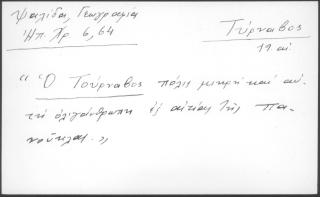 Ψαλίδα, Γεωγραφία
Ἠπ. Χρ. 6, 64
Τύρναβος
19 αἰ
"Ὁ Τούρναβος πόλις μικρή καί αὐ-
τή ὀλιγάνθρωπη ἐξ αἰτίας τῆς πα-
νούκλας."